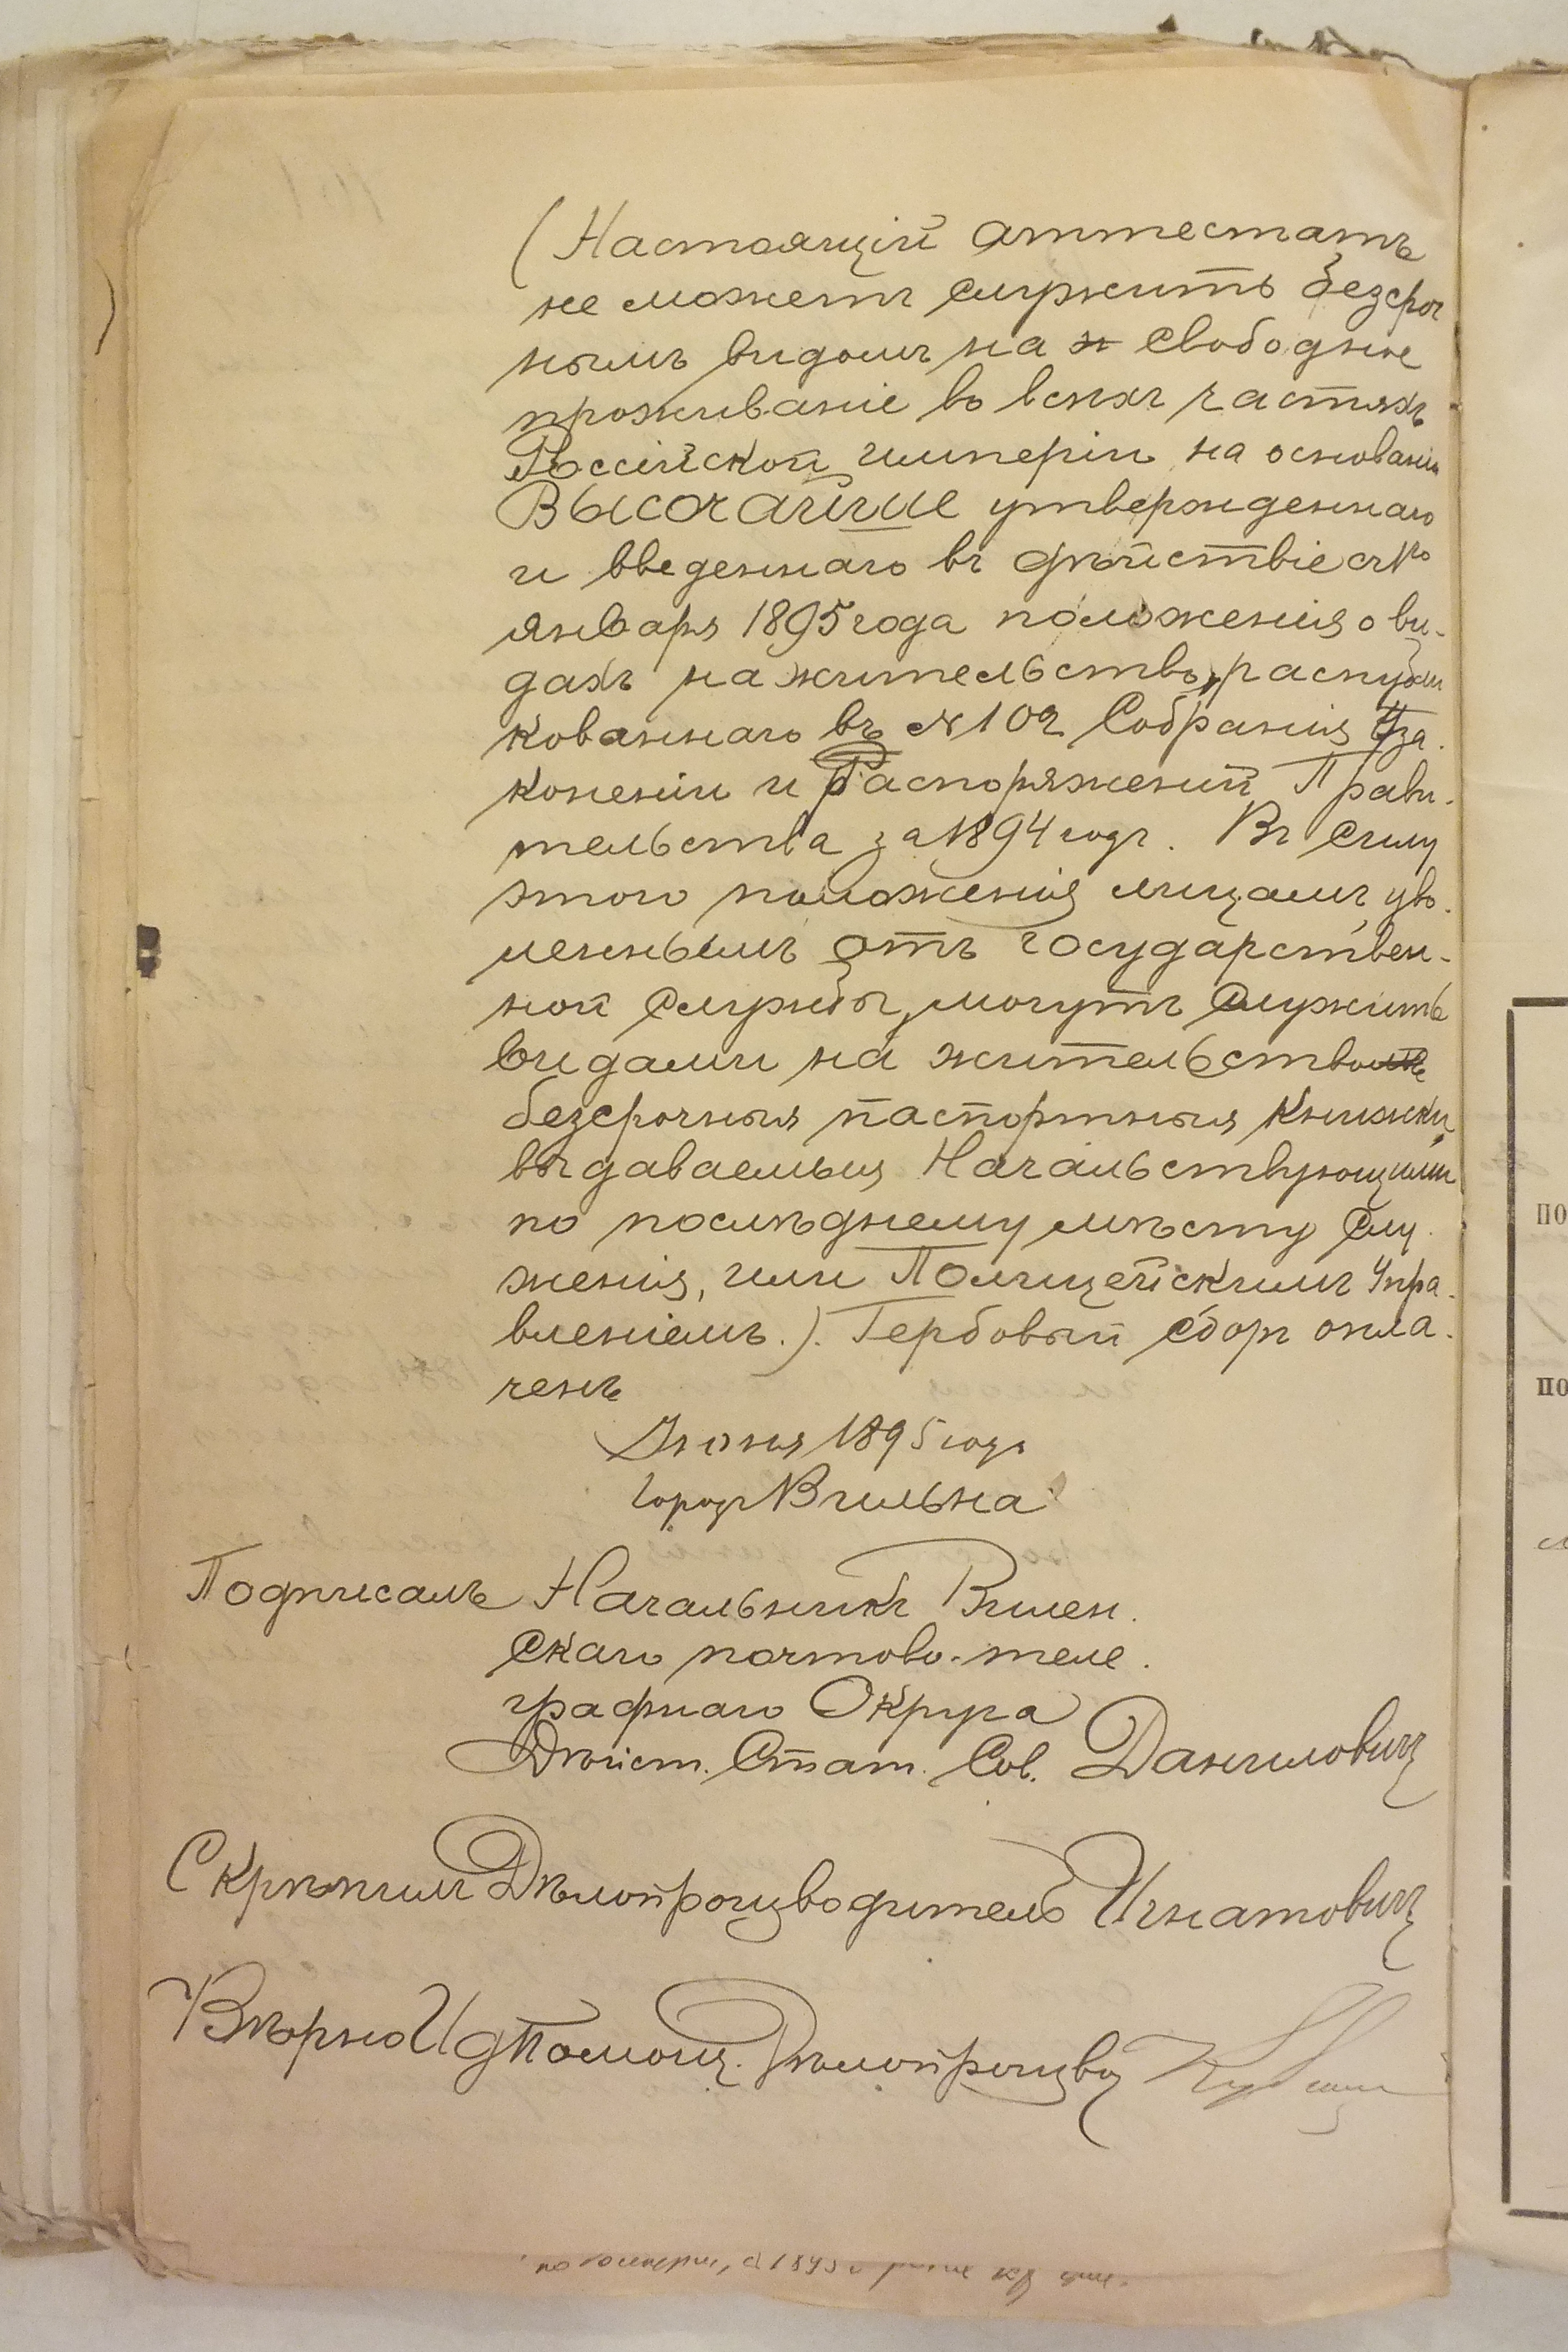 (Настоящій аттестатъ
не можетъ служить безсроч
нымъ видомъ на свободное
проживаніе во всѣхъ частяхъ
Россійской имперіи, на основаніи
Высочайше утвержденнаго
и введеннаго въ дѣйствіе съ 1го
января 1895 года положенія о ви-
дахъ на жительство, распубли
кованнаго въ № 102 Собранія Уза.
коненій и Распоряженій Прави.
тельства за 1894 годъ. Въ силу
этого положенія лицамъ, уво.
леннымъ отъ государствен-
ной службы, могутъ служить
видами на жительство
безсрочныя паспортныя книжки,
выдаваемыя Начальствующими
по послѣднему мѣсту слу.
женія, или Полицейскимъ Упра.
вленіемъ.). Гербовый сборъ опла.
ченъ
Іюня 1895 года
городъ Вильна
Подписалъ Начальникъ Вилен.
скаго почтово-теле.
графнаго Округа
Дѣйст. Стат. Сов. Даниловичъ
Скрѣпилъ Дѣлопроизводитель Игнатовичъ
Вѣрно: Ид Помощ. Дѣлопроизвод
по
по